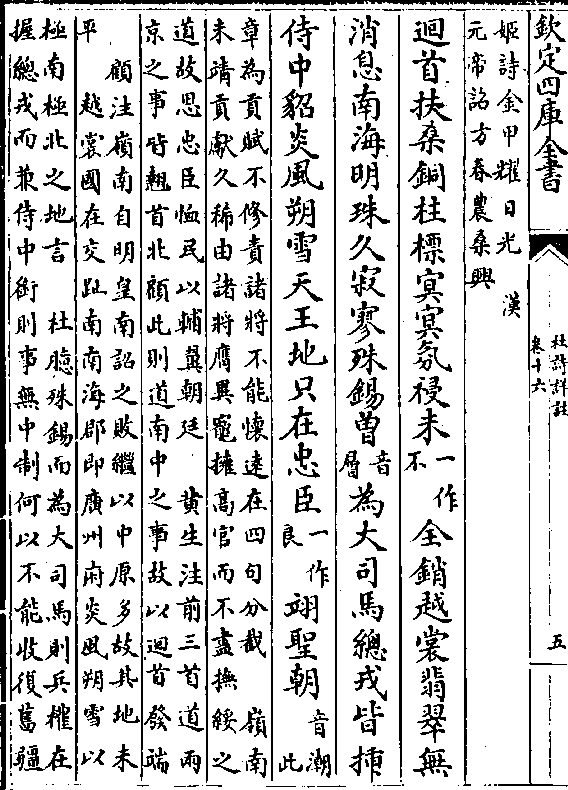 欽定四庫全書
杜詩詳註
卷十六
五
姬詩金甲耀日光 漢
元帝詔方春農桑興
迴首扶桑銅柱標冥冥氛祲未一作不全銷越裳翡翠無
消息南海明珠久寂寥殊錫曾音層為大司馬總戎皆揷
侍中貂炎風朔雪天王地只在忠臣一作良翊聖朝音潮 此
章為貢賦不修責諸將不能懷遠在四句分截 嶺南
未靖貢獻久稀由諸將膺異寵擁高官而不盡撫綏之
道故思忠臣恤民以輔翼朝廷 黃生注前三首道兩
京之事皆翹首北顧此則道南中之事故以迴首發端
顧注嶺南自明皇南詔之敗繼以中原多故其地未
平 越裳國在交趾南南海郡即廣州府炎風朔雪以
極南極北之地言 杜臆殊錫而為大司馬則兵權在
握總戎而兼侍中銜則事無中制何以不能收復舊疆